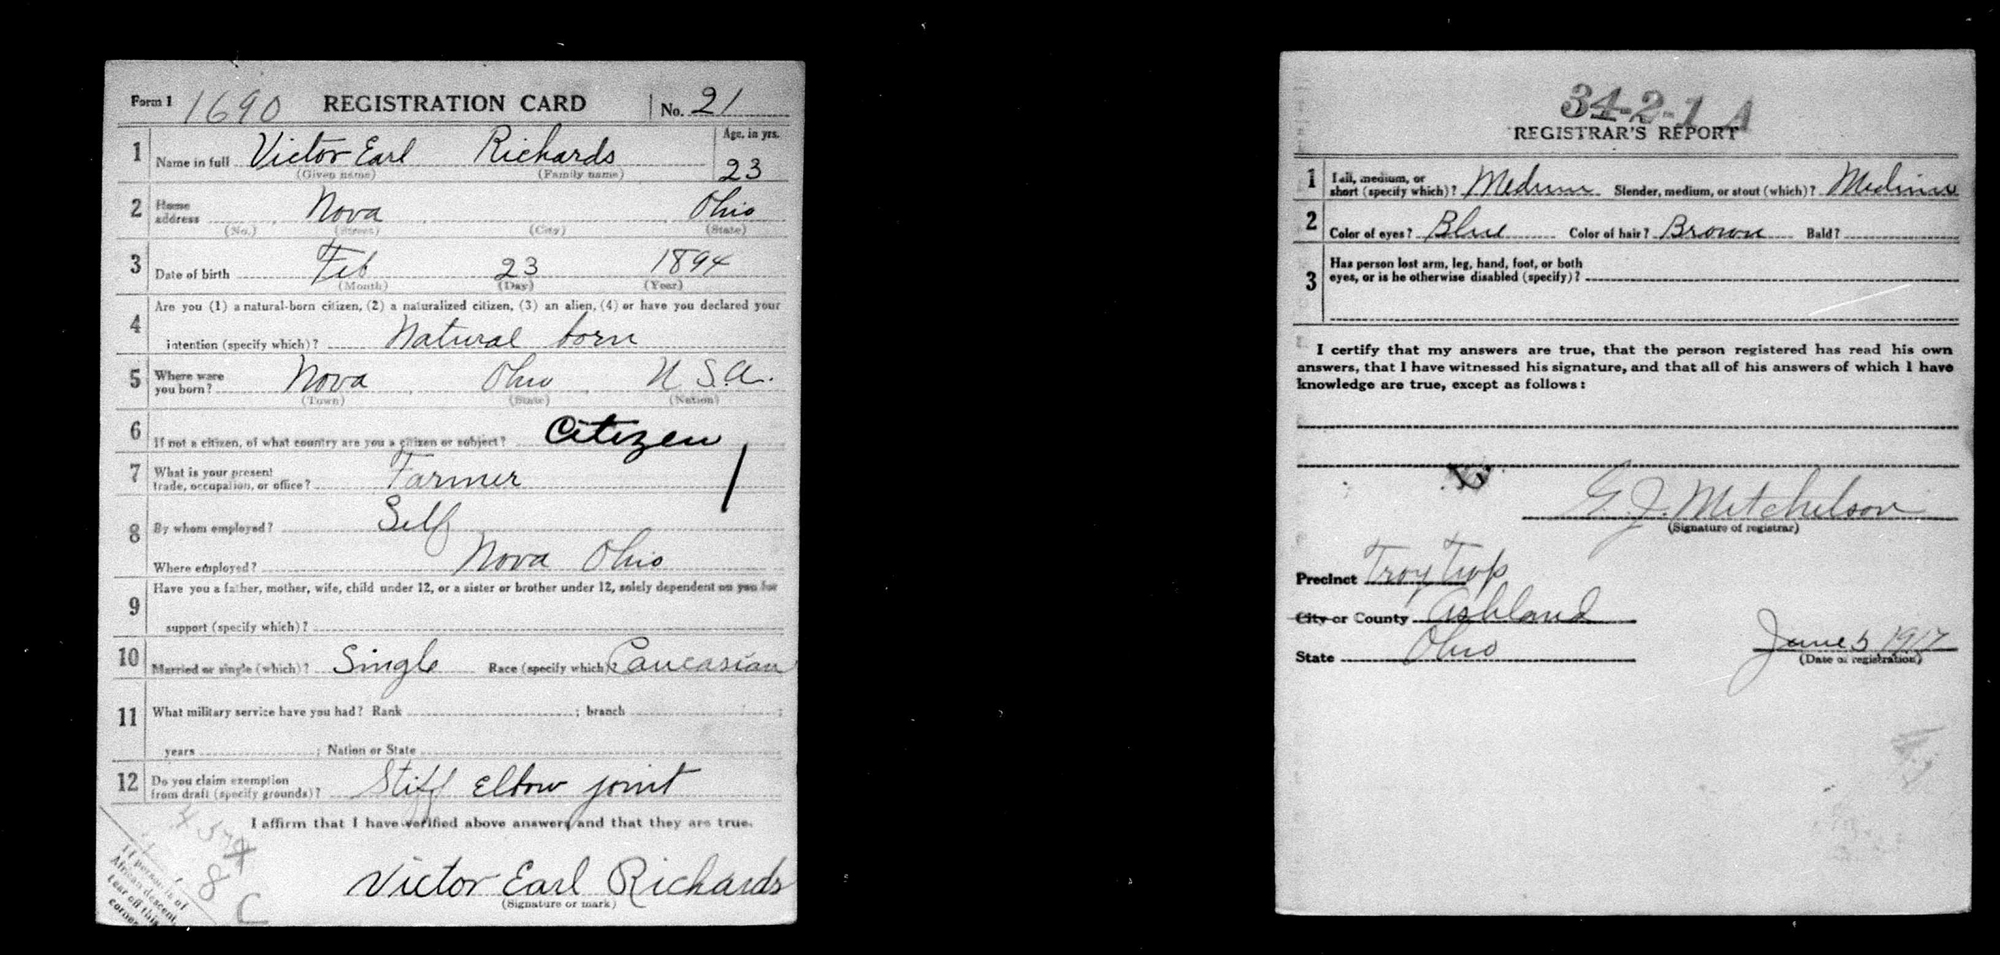 Form 1 1690 REGISTRATION CARD No. 21
1 Name in full Victor Earl Richards Age, in yrs. 23
(Given name) (Family name)
2 Home address Nova Ohio
(No.) (Street) (City) (State)
3 Date of birth Feb 23 1894
(Month) (Day) (Year)
4 Are you (1) a natural-born citizen, (2) a naturalized citizen, (3) an alien, (4) or have you declared your
intention (specify which)? Natural born
5 Where were you born? Nova Ohio U.S.A.
(Town) (State) (Nation)
6 If not a citizen, of what country are you a citizen or subject? Citizen
7 What is your present trade, occupation, or office? Farmer
8 By whom employed? Self
Where employed? Nova Ohio
9 Have you a father, mother, wife, child under 12, or a sister or brother under 12, solely dependent on you for
support (specify which)?
10 Married or single (which)? Single Race (specify which)? Caucasian
11 What military service have you had? Rank ; branch ;
years ; Nation or State
12 Do you claim exemption from draft (specify grounds)? Stiff Elbow joint
I affirm that I have verified above answers and that they are true.
Victor Earl Richards
(Signature or mark)
If person is of
African descent,
tear off this
corner
8
C
34-2-1 A
REGISTRAR'S REPORT
1 Tall, medium, or short (specify which)? Medium Slender, medium, or stout (which)? Medium
2 Color of eyes? Blue Color of hair? Brown Bald?
3 Has person lost arm, leg, hand, foot, or both
eyes, or is he otherwise disabled (specify)?
I certify that my answers are true, that the person registered has read his own
answers, that I have witnessed his signature, and that all of his answers of which I have
knowledge are true, except as follows:
G. J. Mitchelson
(Signature of registrar)
Precinct Troy Twp
City or County Ashland
State Ohio
June 5 1917
(Date of registration)